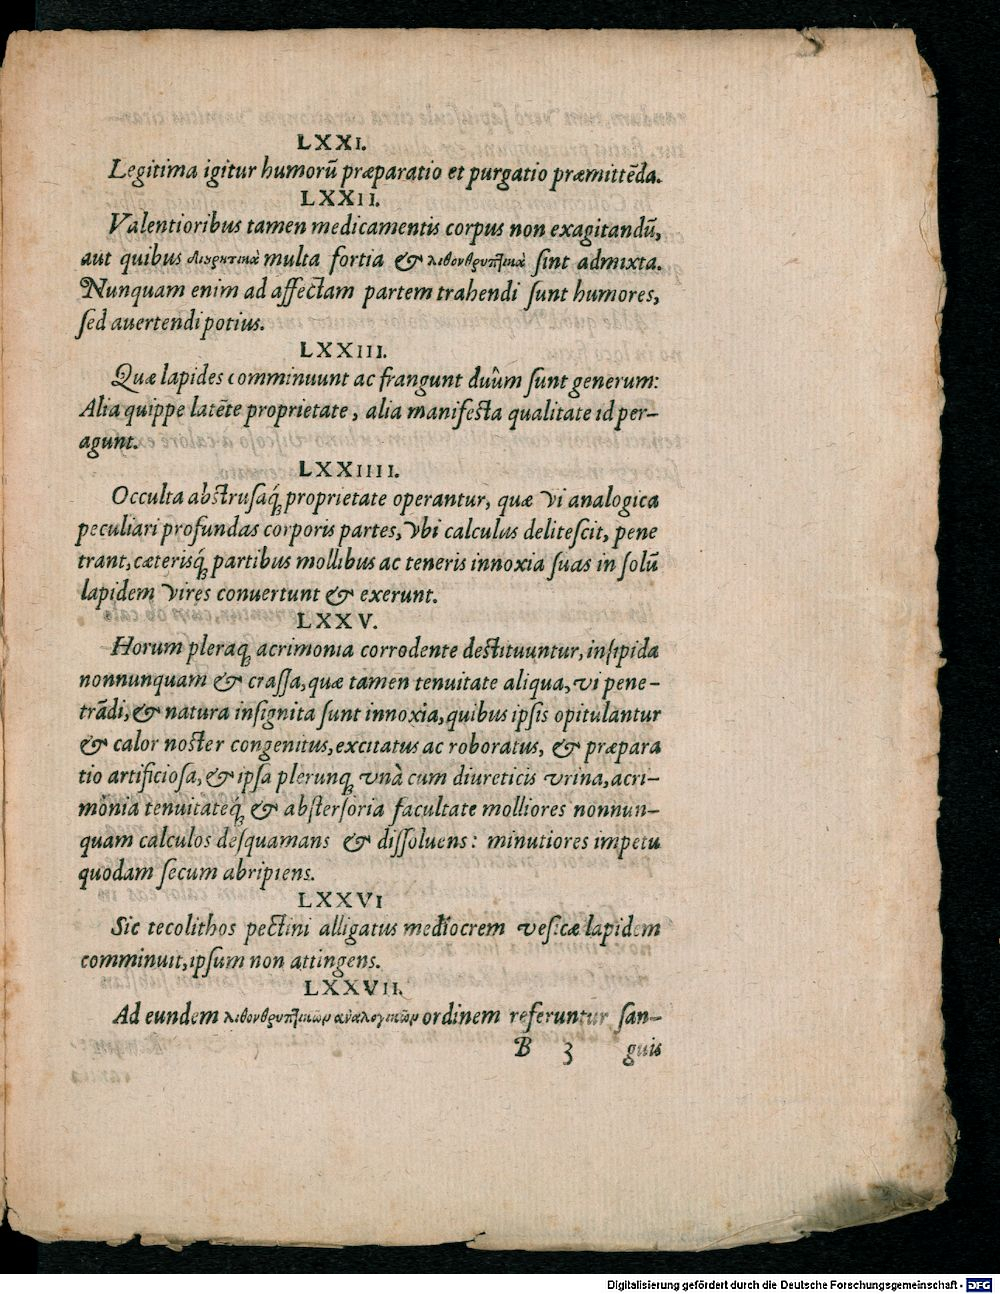 LXXI.
Legitima igitur humorũ præparatio et purgatio præmittẽda.
LXXII.
Valentioribus tamen medicamentis corpus non exagitandũ,
aut quibus διουρητικὰ multa fortia & λιθονθρυπτικὰ ſint admixta.
Nunquam enim ad affectam partem trahendi ſunt humores,
ſed auertendi potius.
LXXIII.
Quæ lapides comminuunt ac frangunt duûm ſunt generum:
Alia quippe latẽte proprietate, alia manifeſta qualitate id per-
agunt.
LXXIIII.
Occulta abſtruſaq́ꝫ proprietate operantur, quæ vi analogica
peculiari profundas corporis partes, vbi calculus deliteſcit, pene
trant, cæterisq́ꝫ partibus mollibus ac teneris innoxia ſuas in ſolũ
lapidem vires conuertunt & exerunt.
LXXV.
Horum pleraqꝫ acrimonia corrodente deſtituuntur, inſipida
nonnunquam & craſſa, quæ tamen tenuitate aliqua, vi pene-
trãdi, & natura inſignita ſunt innoxia, quibus ipſis opitulantur
& calor noſter congenitus, excitatus ac roboratus, & præpara
tio artificioſa, & ipſa plerunqꝫ vnà cum diureticis vrina, acri-
mónia tenuitateq́ꝫ & abſterſoria facultate molliores nonnun-
quam calculos deſquamans & diſſoluens: minutiores impetu
quodam ſecum abripiens.
LXXVI
Sic tecolithos pectini alligatus mediocrem veſicæ lapidem
comminuit, ipſum non attingens.
LXXVII.
Ad eundem λιθονθρυπτικῶν ἀναλογικῶν ordinem referuntur ſan-
B 3 guis
Digitalisierung gefördert durch die Deutsche Forschungsgemeinschaft - DFG